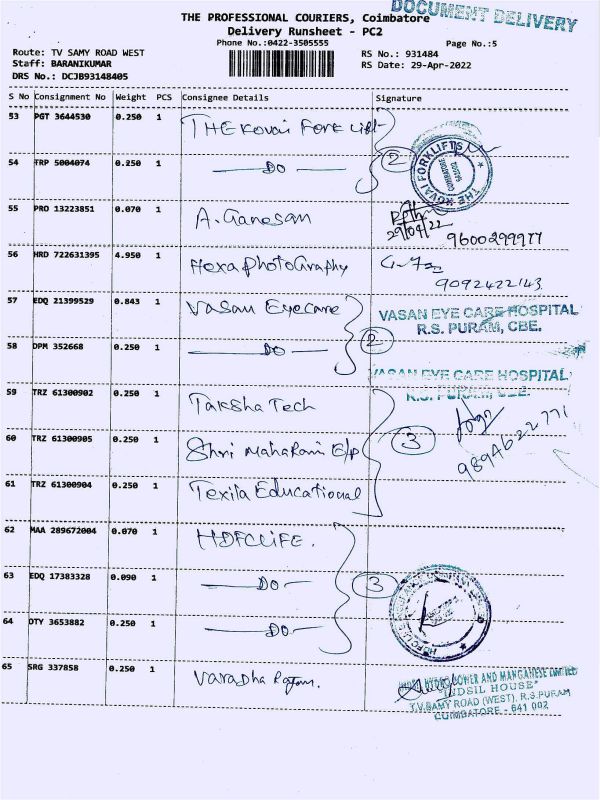 DOCUMENT DELIVERY
THE PROFESSIONAL COURIERS, Coimbatore
Delivery Runsheet - PC2
Phone No.:0422-3505555
Page No.:5
Route: TV SAMY ROAD WEST
Staff: BARANIKUMAR
DRS No.: DCJB93148405
RS No.: 931484
RS Date: 29-Apr-2022
S No Consignment No Weight PCS Consignee Details Signature
53 PGT 3644530 0.250 1 THE Kovai Fork Lift
54 TRP 5004074 0.250 1 DO
2
THE KOVAI FORKLIFTS
COIMBATORE
55 PRO 13223851 0.070 1 A. Ganesan
29/04/22
9600299977
56 HRD 722631395 4.950 1 HexaPhotoGraphy
9092422143
57 EDQ 21399529 0.843 1 Vasan Eyecare
VASAN EYE CARE HOSPITAL
R.S. PURAM, CBE.
58 DPM 352668 0.250 1 DO
2
VASAN EYE CARE HOSPITAL
R.S. PURAM, CBE.
59 TRZ 61300902 0.250 1 Taksha Tech
60 TRZ 61300905 0.250 1 Shri Maharani E/p
3
9894622771
61 TRZ 61300904 0.250 1 Texila Educational
62 MAA 289672004 0.070 1 HDFC LIFE.
63 EDQ 17383328 0.090 1 DO
3
64 OTY 3653882 0.250 1 DO
65 SRG 337858 0.250 1 Varadha
POWER AND MANGANESE LIMITED
HOUSE"
T.V. SAMY ROAD (WEST), R.S. PURAM
COIMBATORE - 641 002